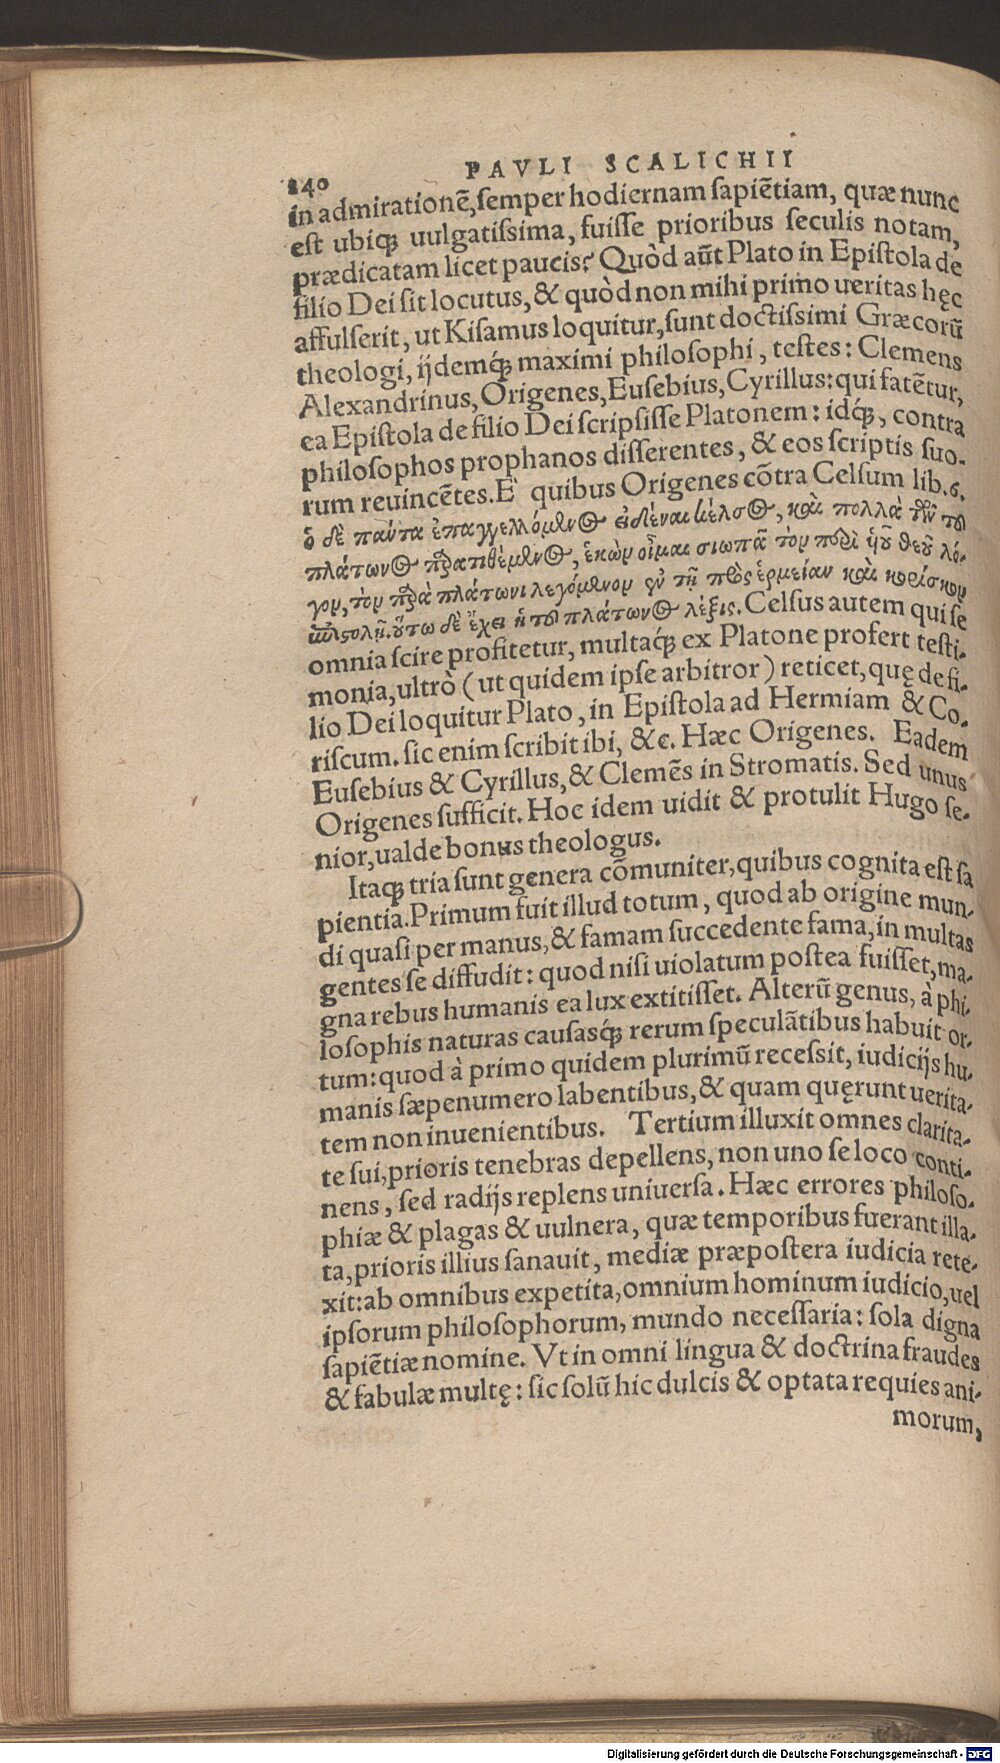 PAVLI SCALICHII
240
in admirationẽ, semper hodiernam sapiẽtiam, quæ nunc
est ubiq; uulgatissima, fuisse prioribus seculis notam,
prædicatam licet paucis? Quòd aũt Plato in Epistola de
filio Dei sit locutus, & quòd non mihi primo ueritas hęc
affulserit, ut Kisamus loquitur, sunt doctissimi Græcorũ
theologi, ijdemq́; maximi philosophi, testes: Clemens
Alexandrinus, Origenes, Eusebius, Cyrillus: qui fatẽtur,
ea Epistola de filio Dei scripsisse Platonem: idq́;, contra
philosophos prophanos disserentes, & eos scriptis suo-
rum reuincẽtes. E quibus Origenes cõtra Celsum lib. 6.
ὁ δὲ πάντα ἐπαγγελλόμενος εἰδέναι κέλσος, καὶ πολλὰ τῶν τοῦ
πλάτωνος παρατιθέμενος, ἑκὼν οἶμαι σιωπᾷ τὸν περὶ ἡοῦ θεοῦ λό-
γον, τὸν παρὰ πλάτωνι λεγόμενον ἐν τῇ πρὸς ἑρμείαν καὶ κορίσκον
ἐπιστολῇ. οὕτω δὲ ἔχει ἡ τοῦ πλάτωνος λέξις. Celsus autem qui se
omnia scire profitetur, multaq́; ex Platone profert testi-
monia, ultrò (ut quidem ipse arbitror) reticet, quę de fi-
lio Dei loquitur Plato, in Epistola ad Hermiam & Co-
riscum. sic enim scribit ibi, &c. Hæc Origenes. Eadem
Eusebius & Cyrillus, & Clemẽs in Stromatis. Sed unus
Origenes sufficit. Hoc idem uidit & protulit Hugo se-
nior, ualde bonus theologus.
Itaq; tria sunt genera cõmuniter, quibus cognita est sa
pientia. Primum fuit illud totum, quod ab origine mun-
di quasi per manus, & famam succedente fama, in multas
gentes se diffudit: quod nisi uiolatum postea fuisset, ma-
gna rebus humanis ea lux extitisset. Alterũ genus, à phi-
losophis naturas causasq́; rerum speculãtibus habuit or-
tum: quod à primo quidem plurimũ recessit, iudicijs hu-
manis sæpenumero labentibus, & quam quęrunt uerita-
tem non inuenientibus. Tertium illuxit omnes clarita-
te sui, prioris tenebras depellens, non uno se loco conti-
nens, sed radijs replens uniuersa. Hæc errores philoso-
phiæ & plagas & uulnera, quæ temporibus fuerant illa-
ta, prioris illius sanauit, mediæ præpostera iudicia rete-
xit: ab omnibus expetita, omnium hominum iudicio, uel
ipsorum philosophorum, mundo necessaria: sola digna
sapiẽtiæ nomine. Vt in omni lingua & doctrina fraudes
& fabulæ multę: sic solũ hic dulcis & optata requies ani-
morum,
Digitalisierung gefördert durch die Deutsche Forschungsgemeinschaft - DFG